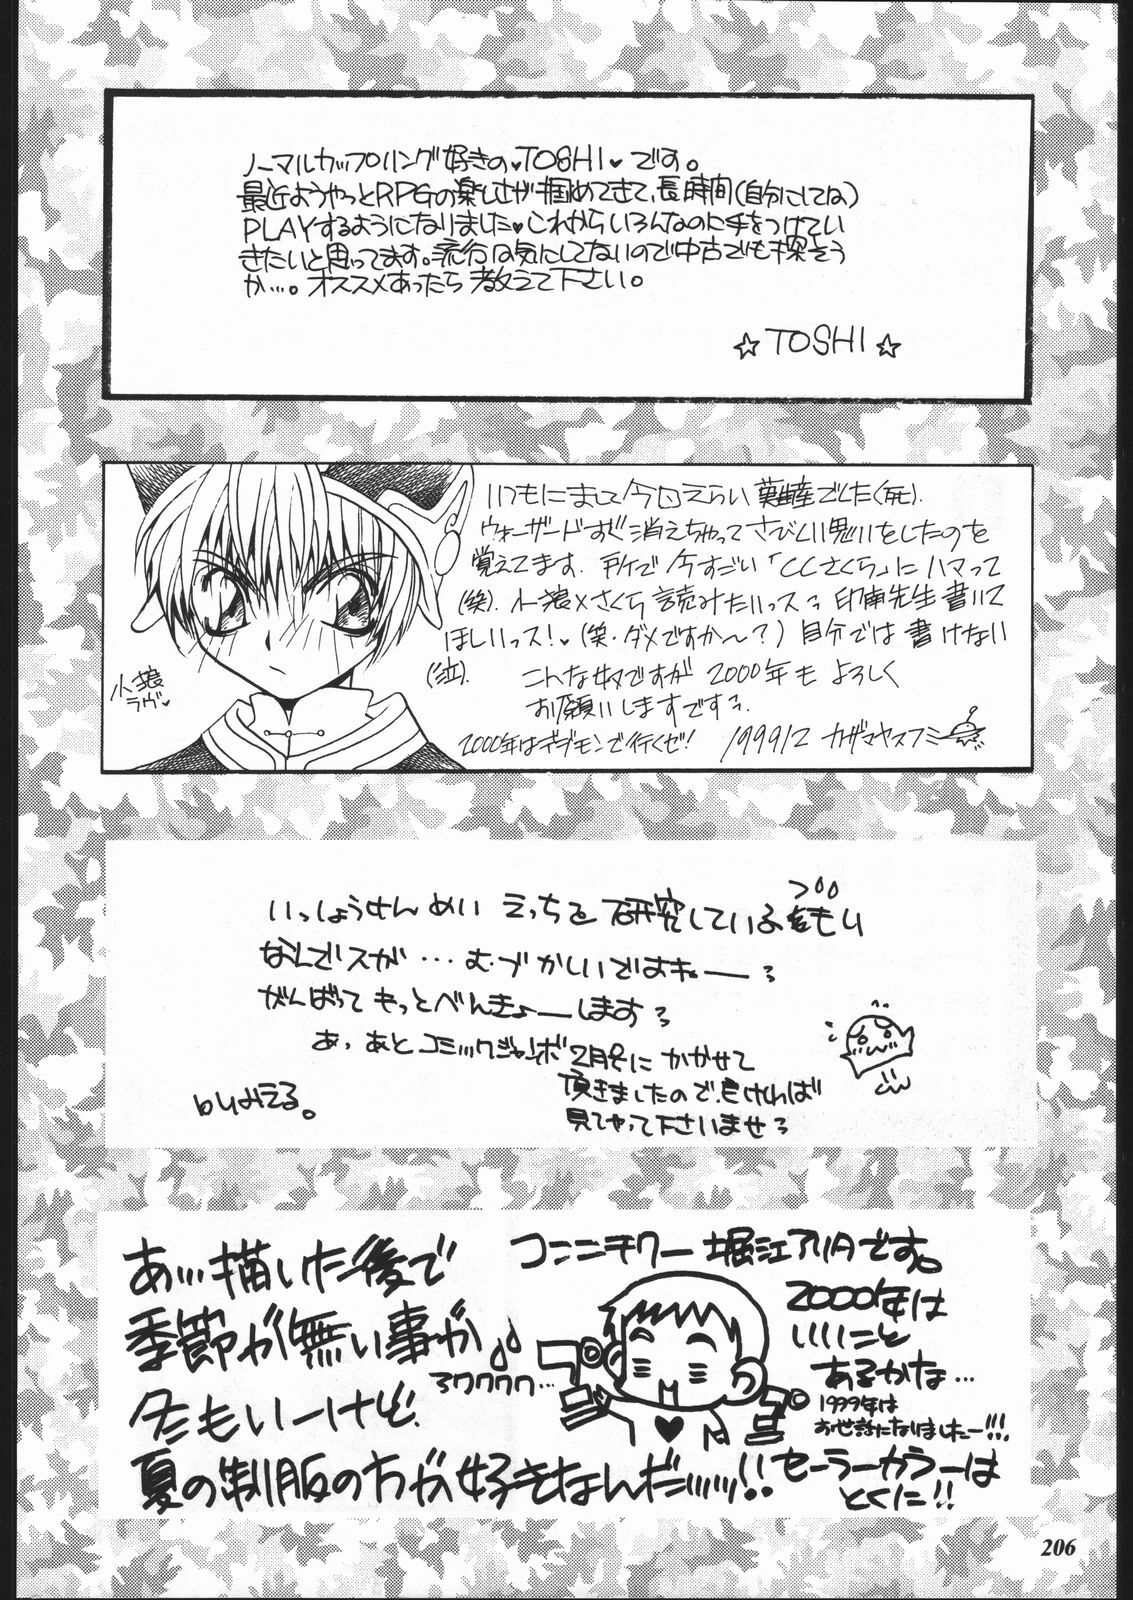 ノーマルカップリング好きの♥TOSHI♥です。
最近ようやっとRPGの楽しさが掴めてきて、長時間(自分にしてね)
PLAYするようになりました♥これからいろんなのに手をつけてい
きたいと思ってます。流行は気にしてないので中古でも探そう
か…。オススメあったら教えて下さい。
☆TOSHI☆
いつもにまして今回えらい難産でした(死).
ウォーザードすぐ消えちゃってさびしい思いをしたのを
覚えてます. 所で今すごい「CCさくら」にハマって
(笑). 小狼×さくら読みたいっス 先生書いて
ほしいっス!♥(笑・ダメですか〜?) 自分では書けない
(泣). こんな奴ですが 2000年もよろしく
お願いしますです
2000年はデジモンで行くぜ! 199912 カザマヤスフミ
小狼
ラヴ♥
いっしょうけんめい えっちを研究しているつもり
なんでスが…むづかしいですねー
がんばって もっとべんきょーします
あっ あとコミックジャンボ2月号にかかせて
頂きましたので.良ければ
見てやって下さいませ
byみえる。
コンニチワー 堀江アリタです。
あ…描いた後で
季節が無い事が
冬もいーけど.
夏の制服の方が好きなんだッッッ!!
セーラーカラーは
とくに!!
2000年は
いいこと
あるかな…
1999年は
お世話になりましたー!!!
206